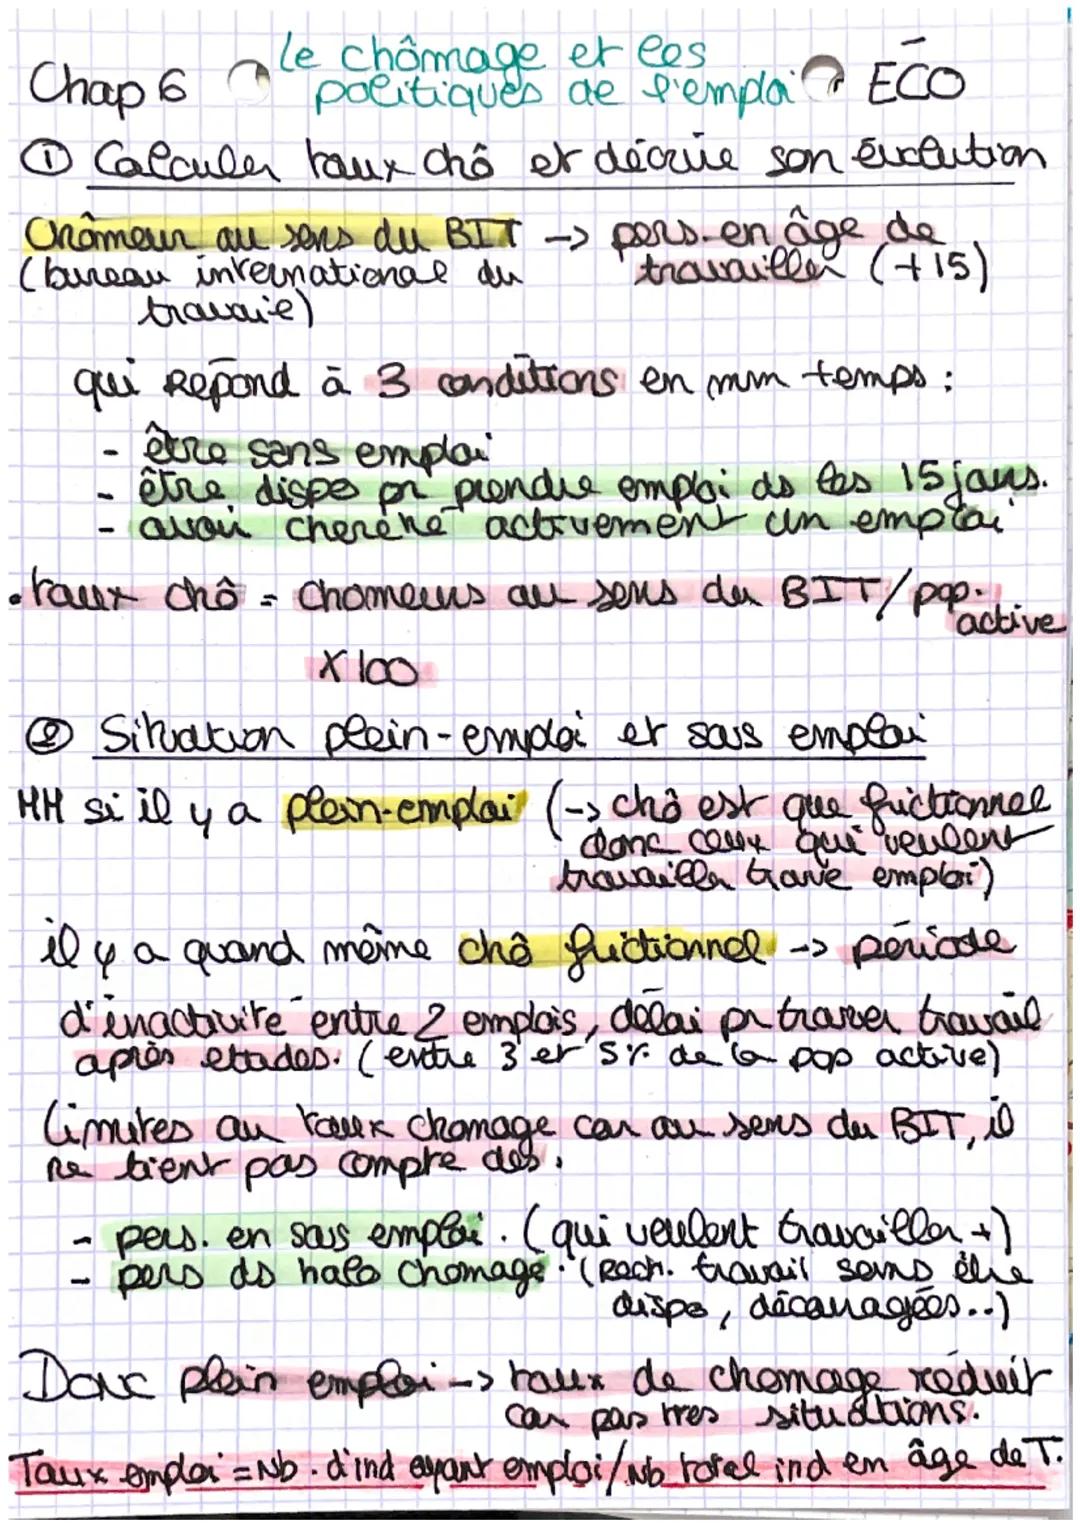 Chap 6 Le chômage et les politiques de l'emploi ECO
① Calculer taux chô et décrire son évolution
Chômeur au sens du BIT -> pers. en âge de
(bureau internationale du travaille (+15)
travail)
qui répond à 3 conditions en mm temps :
- être sans emploi
- être dispo pr prendre emploi ds les 15 jours.
- avoir cherché activement un emploi
• taux chô = chomeurs au sens du BIT / pop. active
X 100
② Situation plein-emploi et sous emploi
MM si il y a plein-emploi (-> chô est que frictionnel
donc ceux qui veulent
travailler trouve emploi)
il y a quand même chô frictionnel -> période
d'inactivité entre 2 emplois, délai pr trouver travail
après études. (entre 3 et 5% de la pop active)
Limites au taux chomage car au sens du BIT, il
ne tient pas compte des :
- pers. en sous emploi. (qui veulent travailler +)
- pers ds halo chomage. (Rech. travail sans être
dispo, découragées..)
Donc plein emploi -> taux de chomage réduit
car pas ttes situations.
Taux emploi = Nb. d'ind ayant emploi / Nb total ind en âge de T.